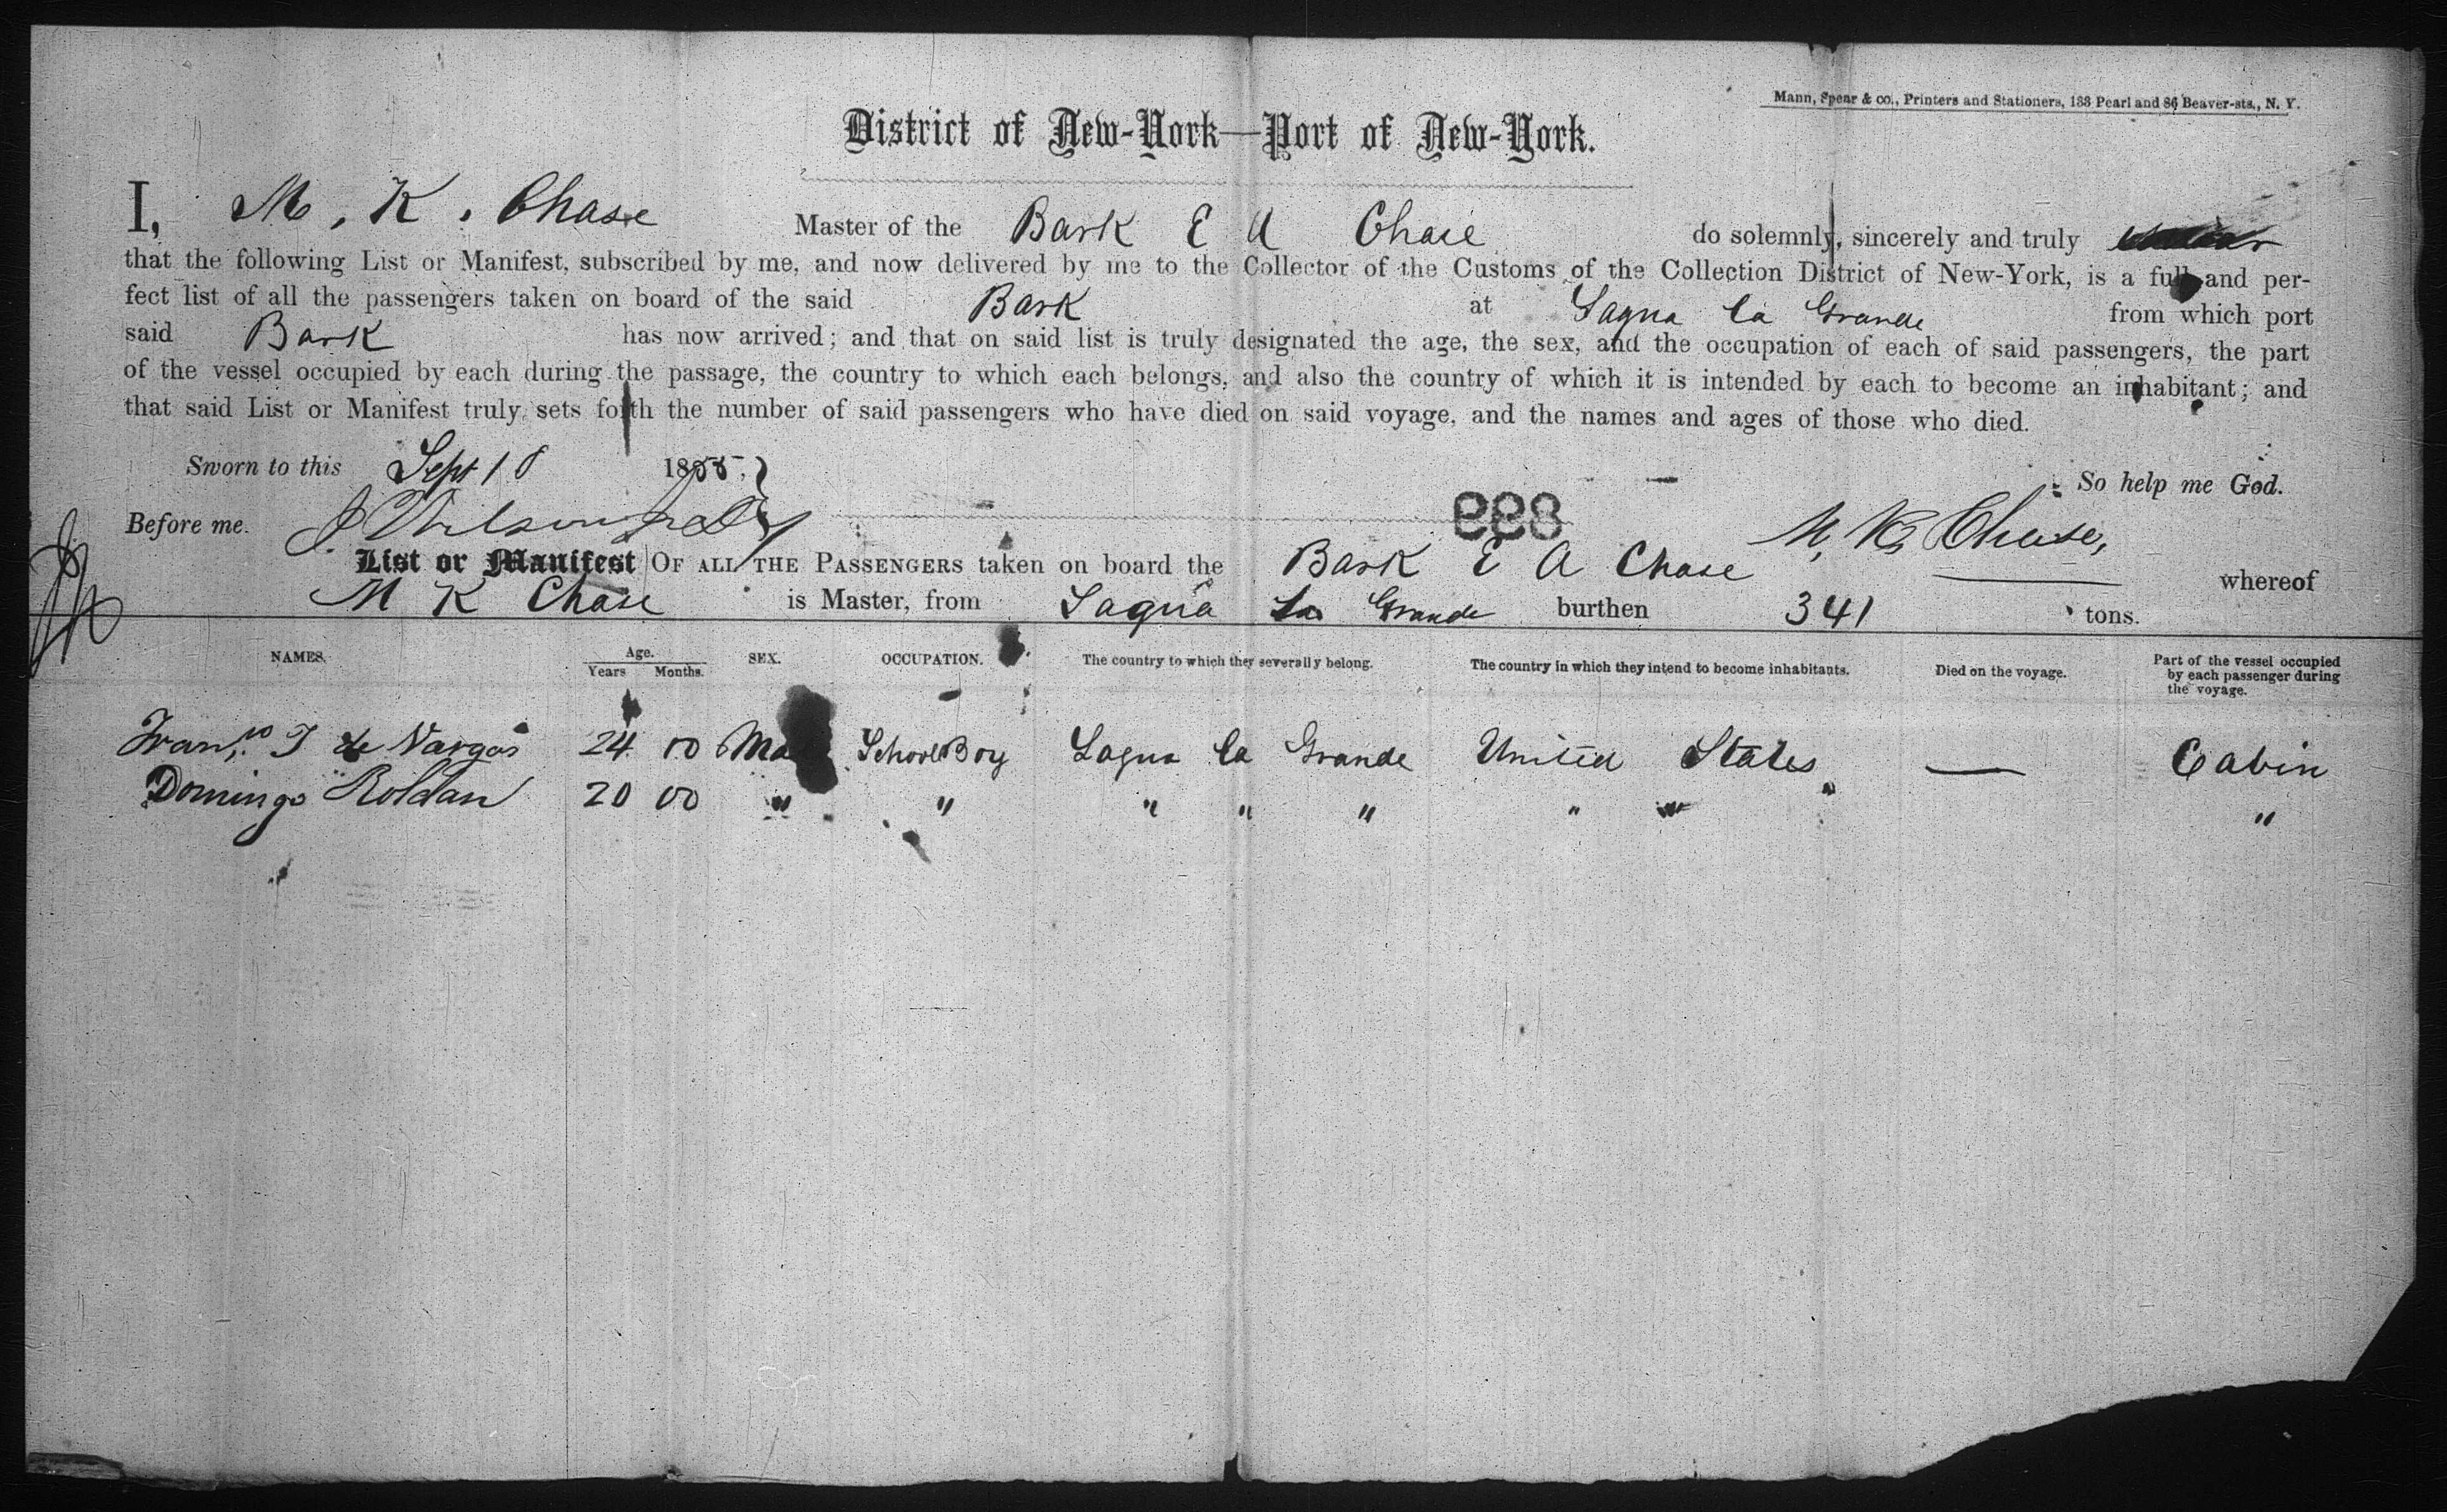 Mann, Spear & co., Printers and Stationers, 133 Pearl and 86 Beaver-sts., N. Y.
District of New-York—Port of New-York.
I, M. K. Chase Master of the Bark E A Chase do solemnly, sincerely and truly
that the following List or Manifest, subscribed by me, and now delivered by me to the Collector of the Customs of the Collection District of New-York, is a full and per-
fect list of all the passengers taken on board of the said Bark at Sagua la Grande from which port
said Bark has now arrived; and that on said list is truly designated the age, the sex, and the occupation of each of said passengers, the part
of the vessel occupied by each during the passage, the country to which each belongs, and also the country of which it is intended by each to become an inhabitant; and
that said List or Manifest truly sets forth the number of said passengers who have died on said voyage, and the names and ages of those who died.
Sworn to this Sept 18 1855. So help me God.
Before me. 899 M. K. Chase,
List or Manifest OF ALL THE PASSENGERS taken on board the Bark E A Chase whereof
M K Chase is Master, from Sagua La Grande burthen 341 tons.
NAMES. Age. Years Months. SEX. OCCUPATION. The country to which they severally belong. The country in which they intend to become inhabitants. Died on the voyage. Part of the vessel occupied
by each passenger during
the voyage.
Fran.co J de Vargas 24 00 Ma School Boy Sagua la Grande United States — Cabin
Domingo Roldan 20 00 " " " " " " " "